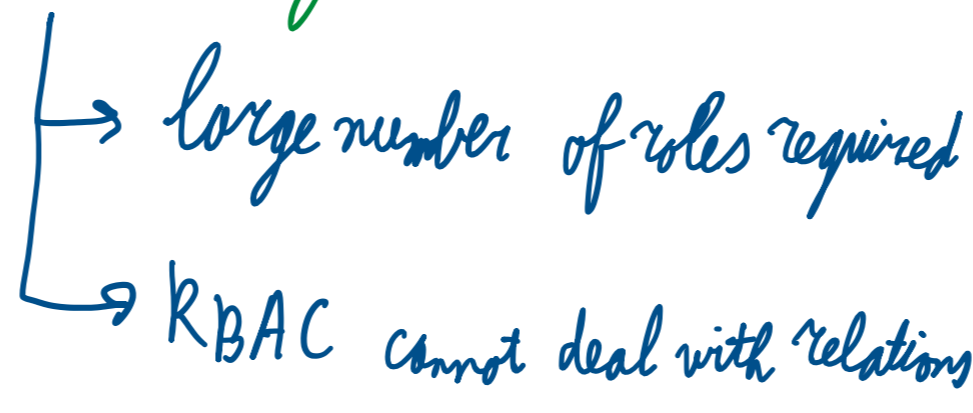 large number of roles required
RBAC cannot deal with relations